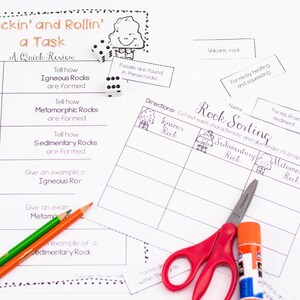 ckin' and Rollin'
a Task
A Quick Review
Tell how
Igneous Rocks
are Formed
Tell how
Metamorphic Rocks
are Formed
Tell how
Sedimentary Rocks
are Formed.
Give an example o
Igneous Ror
Give an exam
Metam
Give an example of a
Sedimentary Rock
Fossils are found
in these rocks
Volcanic rock
Formed by heating
and squeezing
Name
Rock Sorting
Directions: Cut out each characteristic and glue
Igneous
Rock
Sedimentary
Rock
Metamo
Rock